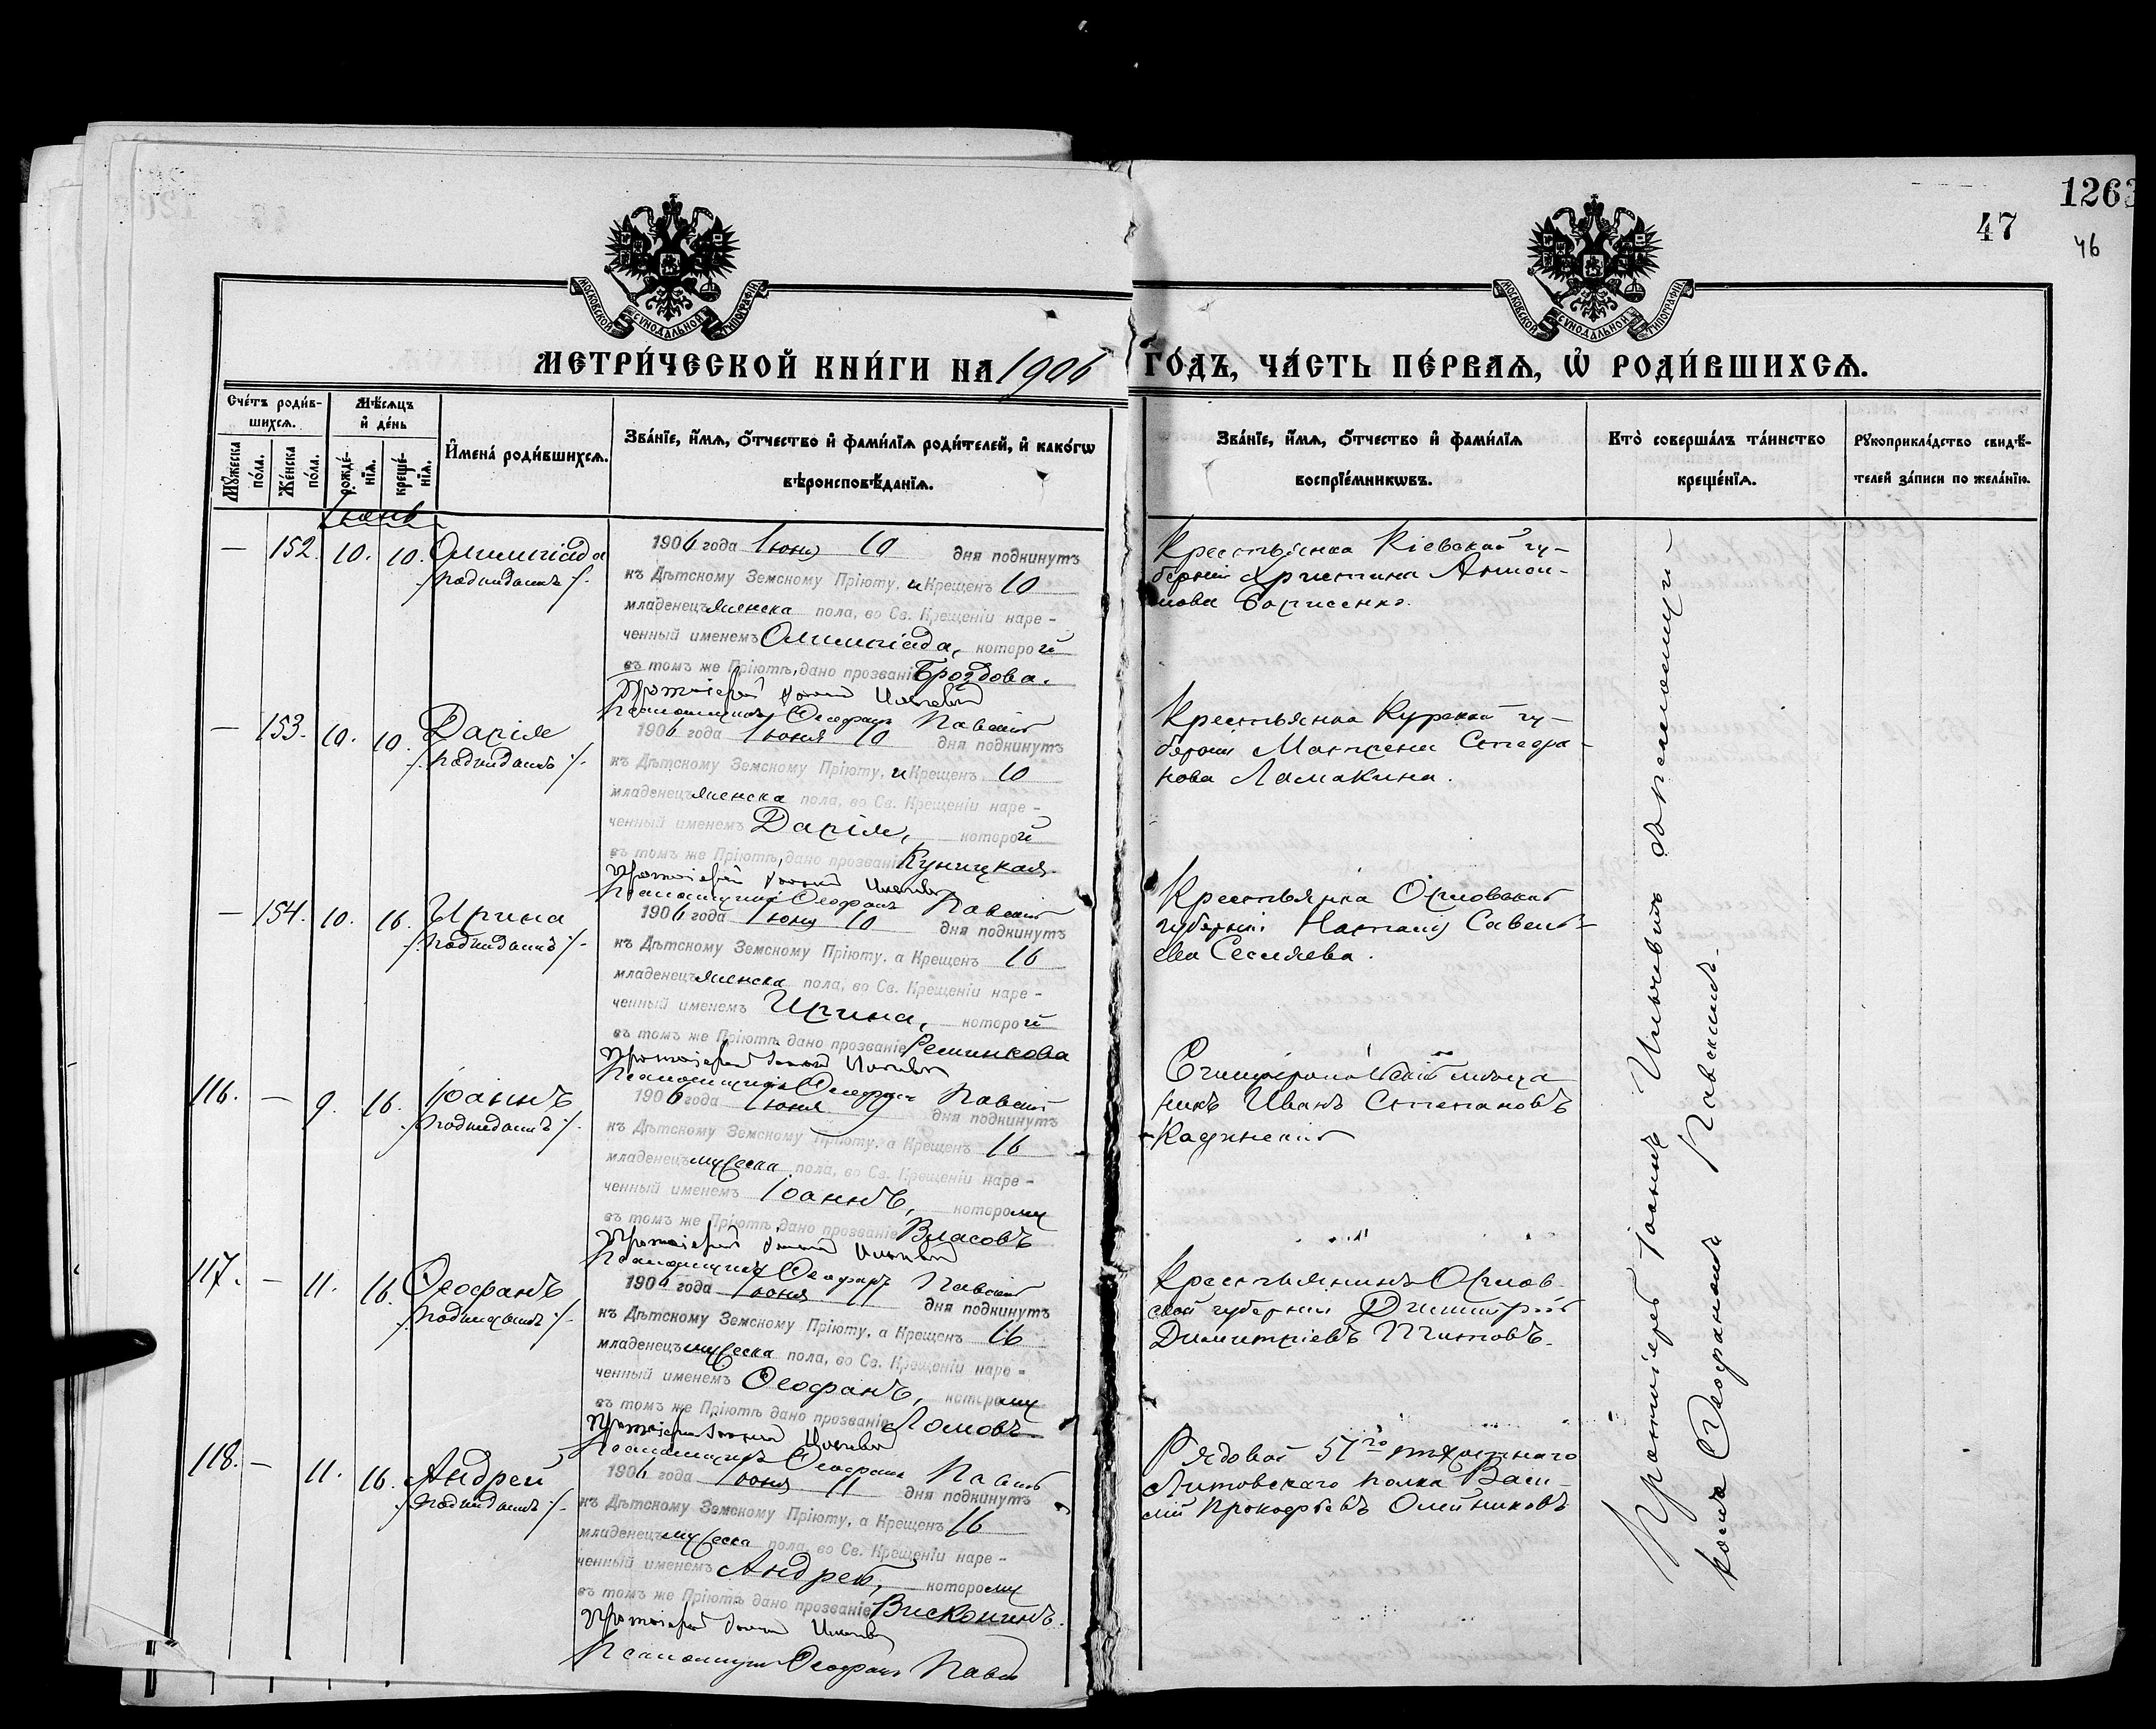 1263
47
46
МОСКОВСКОЙ СѴНОДАЛЬНОЙ ТИПОГРАФІИ
МОСКОВСКОЙ СѴНОДАЛЬНОЙ ТИПОГРАФІИ
МЕТРИ́ЧЕСКОЙ КНИ́ГИ НА 1906 ГО́ДЪ, ЧА́СТЬ ПЕ́РВАѦ, Ѡ҆ РОДИ́ВШИХСѦ.
Сче́тъ роди́в-
шихсѧ.
Мѣ́сѧцъ
и҆ де́нь
Мꙋ́жеска
по́ла.
Же́нска
по́ла.
рожде́-
нїѧ.
креще́-
нїѧ.
И҆мена̀ роди́вшихсѧ.
Зва́нїе, и҆́мѧ, ѻ҆́тчество и҆ фами́лїѧ роди́телей, и҆ како́гѡ
вѣроисповѣ́данїѧ.
Зва́нїе, и҆́мѧ, ѻ҆́тчество и҆ фами́лїѧ
воспрїе́мникѡвъ.
Кто̀ соверша́лъ та́инство
креще́нїѧ.
Рꙋкоприкла́дство свидѣ́-
телей за́писи по жела́нїю.
Іюнь
— 152. 10. 10. Олимпіада
/подкидышъ/.
1906 года Іюня 10 дня подкинутъ
къ Дѣтскому Земскому Пріюту, и Крещенъ 10
младенецъ женска пола, во Св. Крещеніи наре-
ченный именемъ Олимпіада, которой
въ томъ же Пріютѣ, дано прозваніе Броздова.
Протоіерей Іоаннъ Ильчевич
Псаломщикъ Ѳеофанъ Павскій
Крестьянка Кіевской гу-
берніи Христина Антон-
нова Борисенко.
— 153. 10. 10. Дарія
/подкидышъ/.
1906 года Іюня 10 дня подкинутъ
къ Дѣтскому Земскому Пріюту, и Крещенъ 10
младенецъ женска пола, во Св. Крещеніи наре-
ченный именемъ Дарія, которой
въ томъ же Пріютѣ, дано прозваніе Куницкая.
Протоіерей Іоаннъ
Псаломщикъ Ѳеофанъ Павскій
Крестьянка Курской гу-
берніи Матрена Стефа-
нова Ламакина.
— 154. 10. 16. Ирина
/подкидышъ/.
1906 года Іюня 10 дня подкинутъ
къ Дѣтскому Земскому Пріюту, а Крещенъ 16
младенецъ женска пола, во Св. Крещеніи наре-
ченный именемъ Ирина, которой
въ томъ же Пріютѣ дано прозваніе
Протоіерей Іоаннъ
Псаломщикъ Ѳеофанъ Павскій
Крестьянка Орловской
губерніи Наталія Савель-
ева
116. — 9. 16. Іоаннъ
/подкидышъ/.
1906 года Іюня 9 дня подкинутъ
къ Дѣтскому Земскому Пріюту, а Крещенъ 16
младенецъ мужеска пола, во Св. Крещеніи наре-
ченный именемъ Іоаннъ, которому
въ томъ же Пріютѣ, дано прозваніе Власовъ
Протоіерей Іоаннъ
Псаломщикъ Ѳеофанъ Павскій
Симферопольскій мѣща
нинъ Иванъ Степановъ
117. — 11. 16. Ѳеофанъ
/подкидышъ/.
1906 года Іюня 11 дня подкинутъ
къ Дѣтскому Земскому Пріюту, а Крещенъ 16
младенецъ мужеска пола, во Св. Крещеніи наре-
ченный именемъ Ѳеофанъ, которому
въ томъ же Пріютѣ дано прозваніе Ломовъ
Протоіерей Іоаннъ
Псаломщикъ Ѳеофанъ Павскій
Крестьянинъ Орлов
ской губерніи Димитрій
Димитріевъ Титовъ.
118. — 11. 16. Андрей
/подкидышъ/.
1906 года Іюня 11 дня подкинутъ
къ Дѣтскому Земскому Пріюту, а Крещенъ 16
младенецъ мужеска пола, во Св. Крещеніи наре-
ченный именемъ Андрей, которому
въ томъ же Пріютѣ дано прозваніе
Протоіерей Іоаннъ
Псаломщикъ Ѳеофанъ Павскій
Рядовой 51го пѣхотнаго
Литовскаго полка Васи-
лій Прокофьевъ Олейниковъ
Протоіерей Іоаннъ съ псаломщи-
комъ Ѳеофаномъ Павскимъ.